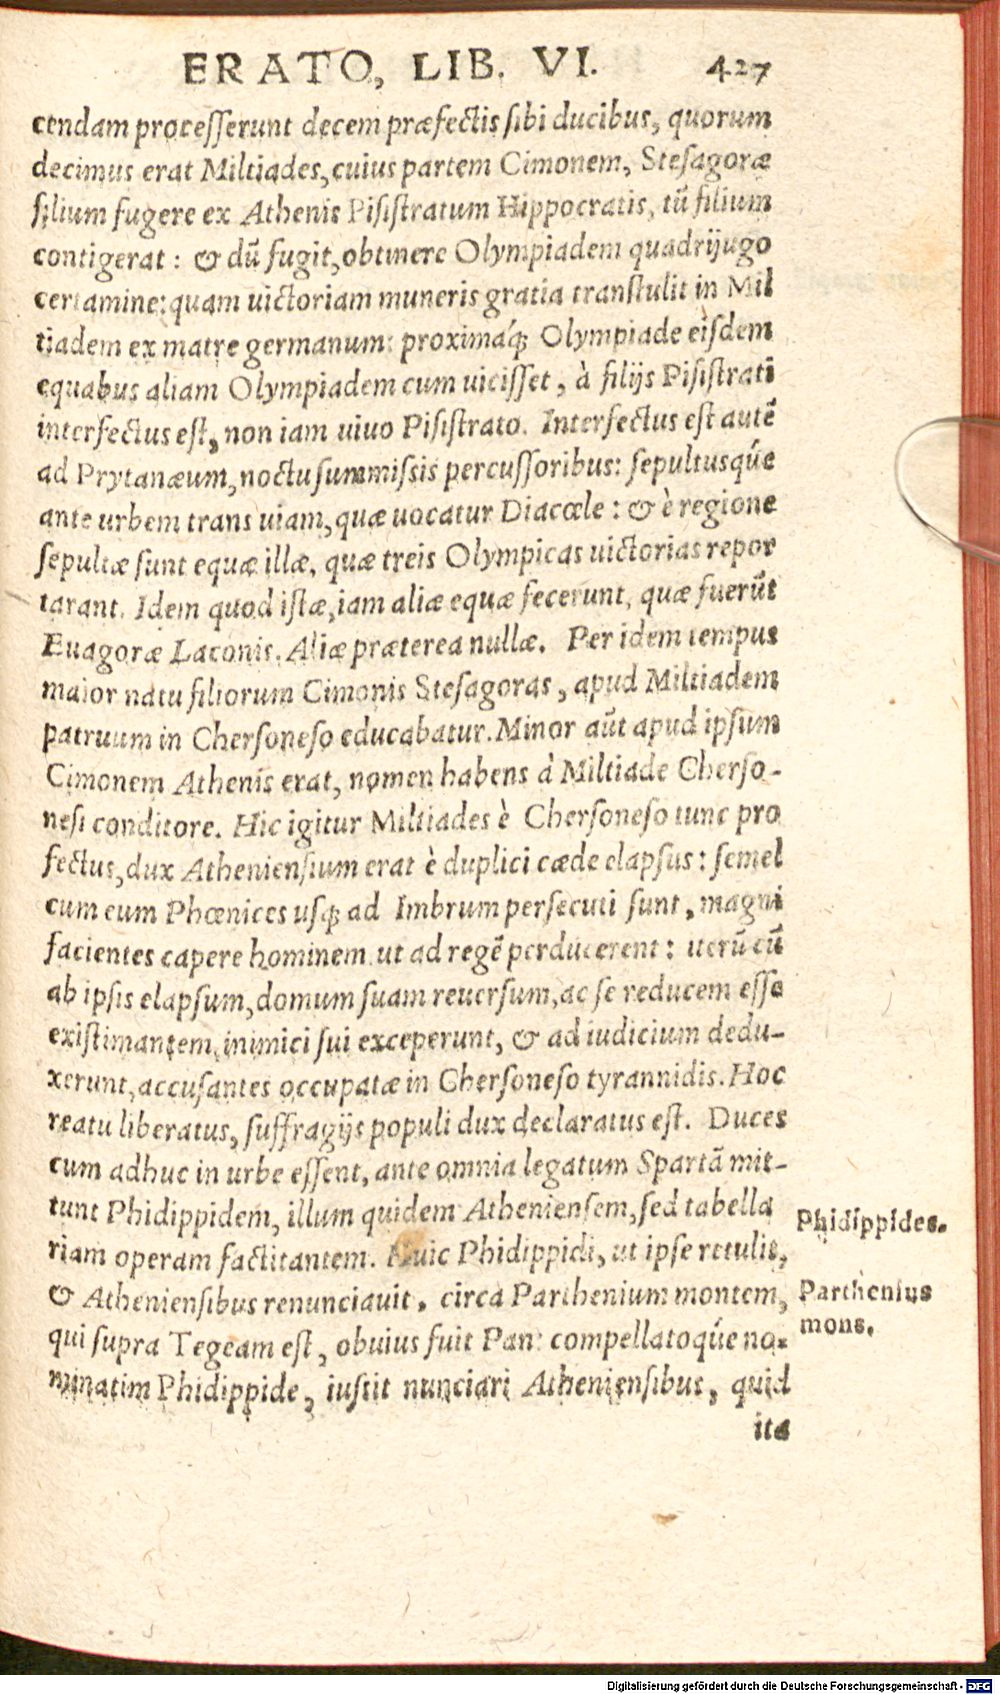 ERATO, LIB. VI. 427
cendam processerunt decem præfectis sibi ducibus, quorum
decimus erat Miltiades, cuius partem Cimonem, Stesagoræ
filium fugere ex Athenis Pisistratum Hippocratis, tũ filium
contigerat: & dũ fugit, obtinere Olympiadem quadrijugo
certamine: quam uictoriam muneris gratia transtulit in Mil
tiadem ex matre germanum: proximáq; Olympiade eisdem
equabus aliam Olympiadem cum uicisset, à filijs Pisistrati
interfectus est, non iam uiuo Pisistrato. Interfectus est autẽ
ad Prytanæum, noctu summissis percussoribus: sepultusq́ue
ante urbem trans uiam, quæ uocatur Diacœle: & è regione
sepultæ sunt equæ illæ, quæ treis Olympicas uictorias repor
tarant. Idem quod istæ, iam aliæ equæ fecerunt, quæ fuerũt
Euagoræ Laconis. Aliæ præterea nullæ. Per idem tempus
maior natu filiorum Cimonis Stesagoras, apud Miltiadem
patruum in Chersoneso educabatur. Minor aũt apud ipsum
Cimonem Athenis erat, nomen habens à Miltiade Cherso-
nesi conditore. Hic igitur Miltiades è Chersoneso tunc pro
fectus, dux Atheniensium erat è duplici cæde elapsus: semel
cum eum Phœnices usq; ad Imbrum persecuti sunt, magni
facientes capere hominem ut ad regẽ perducerent: iterũ cũ
ab ipsis elapsum, domum suam reuersum, ac se reducem esse
existimantem, inimici sui exceperunt, & ad iudicium dedu-
xerunt, accusantes occupatæ in Chersoneso tyrannidis. Hoc
reatu liberatus, suffragijs populi dux declaratus est. Duces
cum adhuc in urbe essent, ante omnia legatum Spartã mit-
tunt Phidippidem, illum quidem Atheniensem, sed tabella
riam operam factitantem. Huic Phidippidi, ut ipse retulit,
& Atheniensibus renunciauit, circa Parthenium montem,
qui supra Tegeam est, obuius fuit Pan: compellatoq́ue no-
minatim Phidippide, iussit nunciari Atheniensibus, quid
ita
Phidippides.
Parthenius
mons.
Digitalisierung gefördert durch die Deutsche Forschungsgemeinschaft - DFG